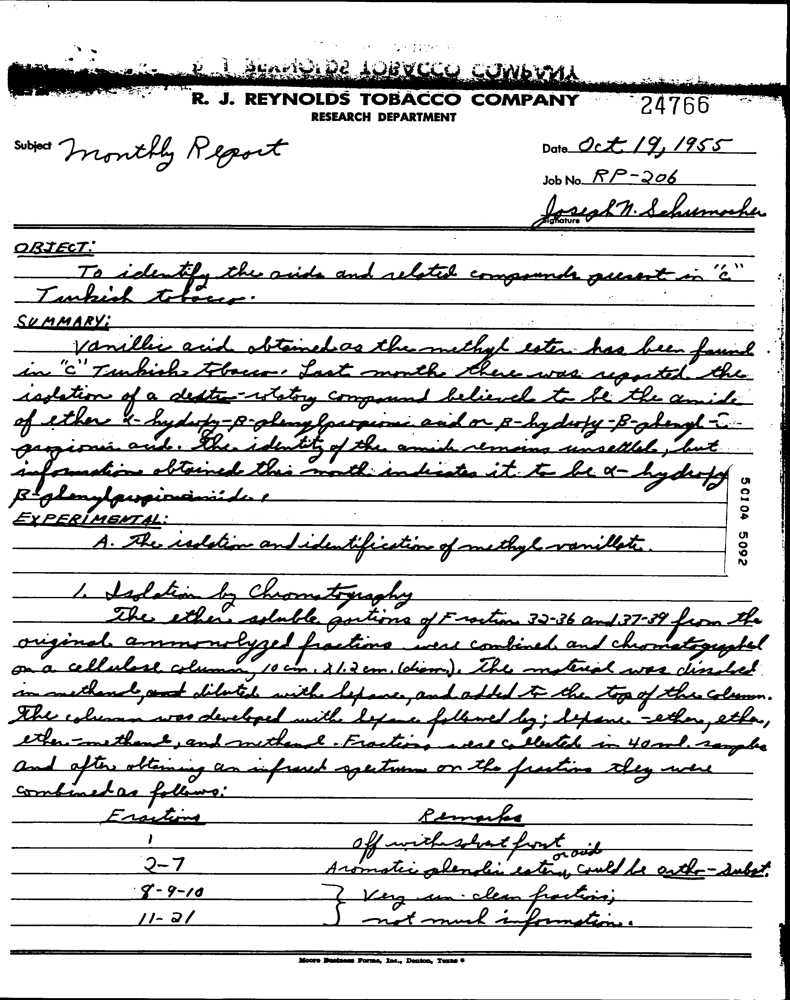 R. J. REYNOLDS TOBACCO COMPANY
R. J. REYNOLDS TOBACCO COMPANY
24766
RESEARCH DEPARTMENT
Subject Monthly Report
Date Oct 19, 1955
Job No. RP-206
Joseph N. Schumacher
Signature
OBJECT:
To identify the acids and related compounds present in "C"
Turkish tobacco.
SUMMARY:
Vanillic acid obtained as the methyl ester has been found
in "C" Turkish tobacco. Last month there was reported the
isolation of a dextro-rotatory compound believed to be the amide
of either α-hydroxy-β-phenylpropionic acid or β-hydroxy-β-phenyl-
propionic acid. The identity of the amide remains unsettled, but
information obtained this month indicates it to be α-hydroxy
β-phenylpropionamide.
50104 5092
EXPERIMENTAL:
A. The isolation and identification of methyl vanillate.
1. Isolation by Chromatography
The ether soluble portions of Fraction 32-36 and 37-39 from the
original ammonolyzed fractions were combined and chromatographed
on a cellulose column, 10 cm. x 1.2 cm. (diam). The material was dissolved
in methanol, and diluted with hexane, and added to the top of the column.
The column was developed with hexane followed by; hexane-ether, ether,
ether-methanol, and methanol. Fractions were collected in 40 ml. samples
and after obtaining an infrared spectrum on the fractions they were
combined as follows:
Fractions Remarks
1 off with solvent front
2-7 Aromatic phenolic ester, or acid could be ortho-subst.
8-9-10 } Very un-clean fractions;
11-21 } not much information.
Moore Business Forms, Inc., Denton, Texas